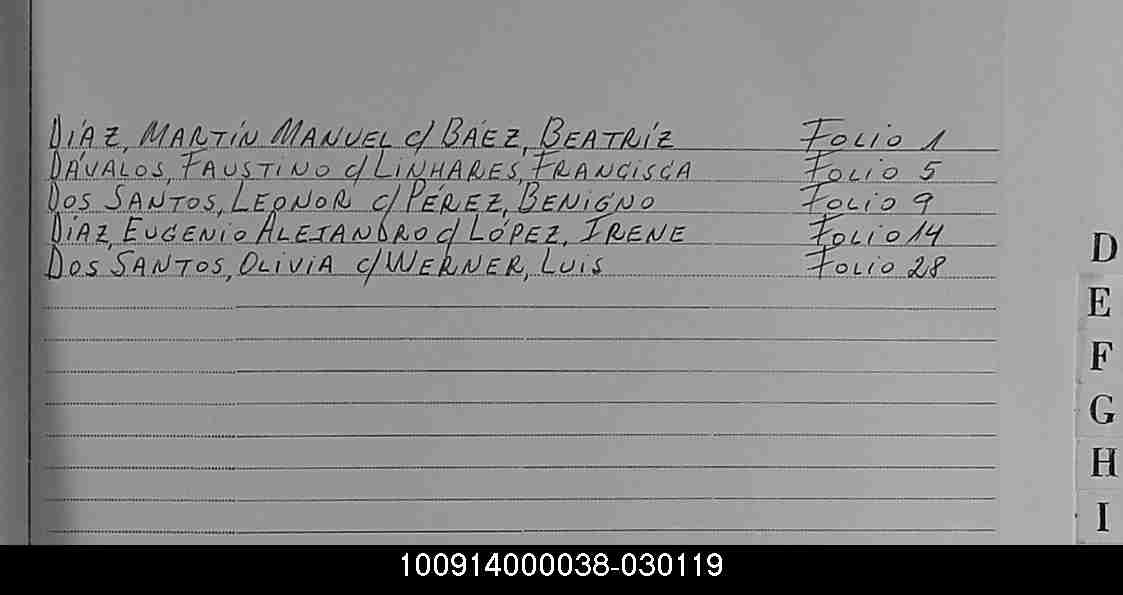 DÍAZ, MARTÍN MANUEL c/ BÁEZ, BEATRÍZ FOLIO 1
DÁVALOS, FAUSTINO c/ LINHARES, FRANCISCA FOLIO 5
DOS SANTOS, LEONOR c/ PÉREZ, BENIGNO FOLIO 9
DÍAZ, EUGENIO ALEJANDRO c/ LÓPEZ, IRENE FOLIO 14
DOS SANTOS, OLIVIA c/ WERNER, LUIS FOLIO 28
D
E
F
G
H
I
100914000038-030119